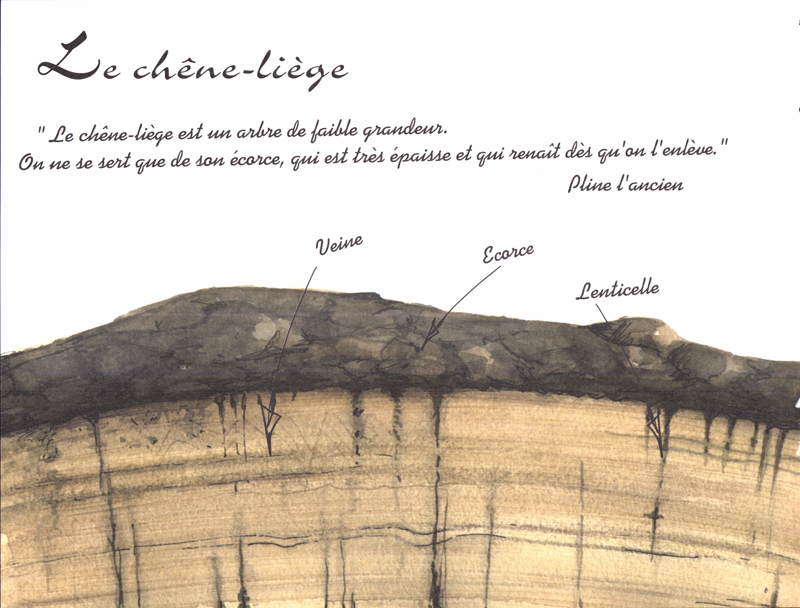 Le chêne-liège
" Le chêne-liège est un arbre de faible grandeur.
On ne se sert que de son écorce, qui est très épaisse et qui renaît dès qu'on l'enlève."
Pline l'ancien
Veine
Ecorce
Lenticelle